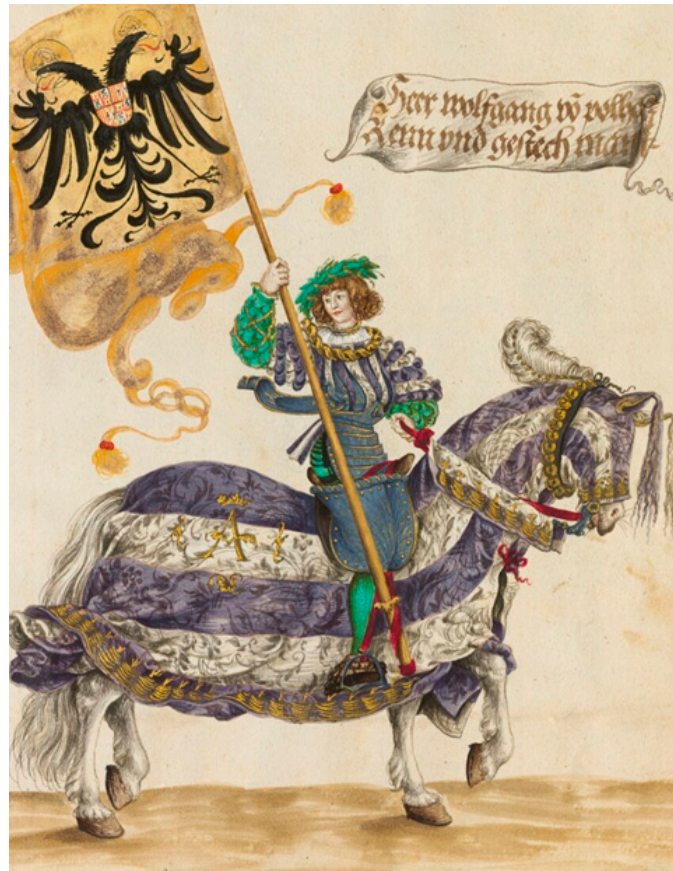 Herr wolfgang vō polhei
Renn vnd gestech maist
A